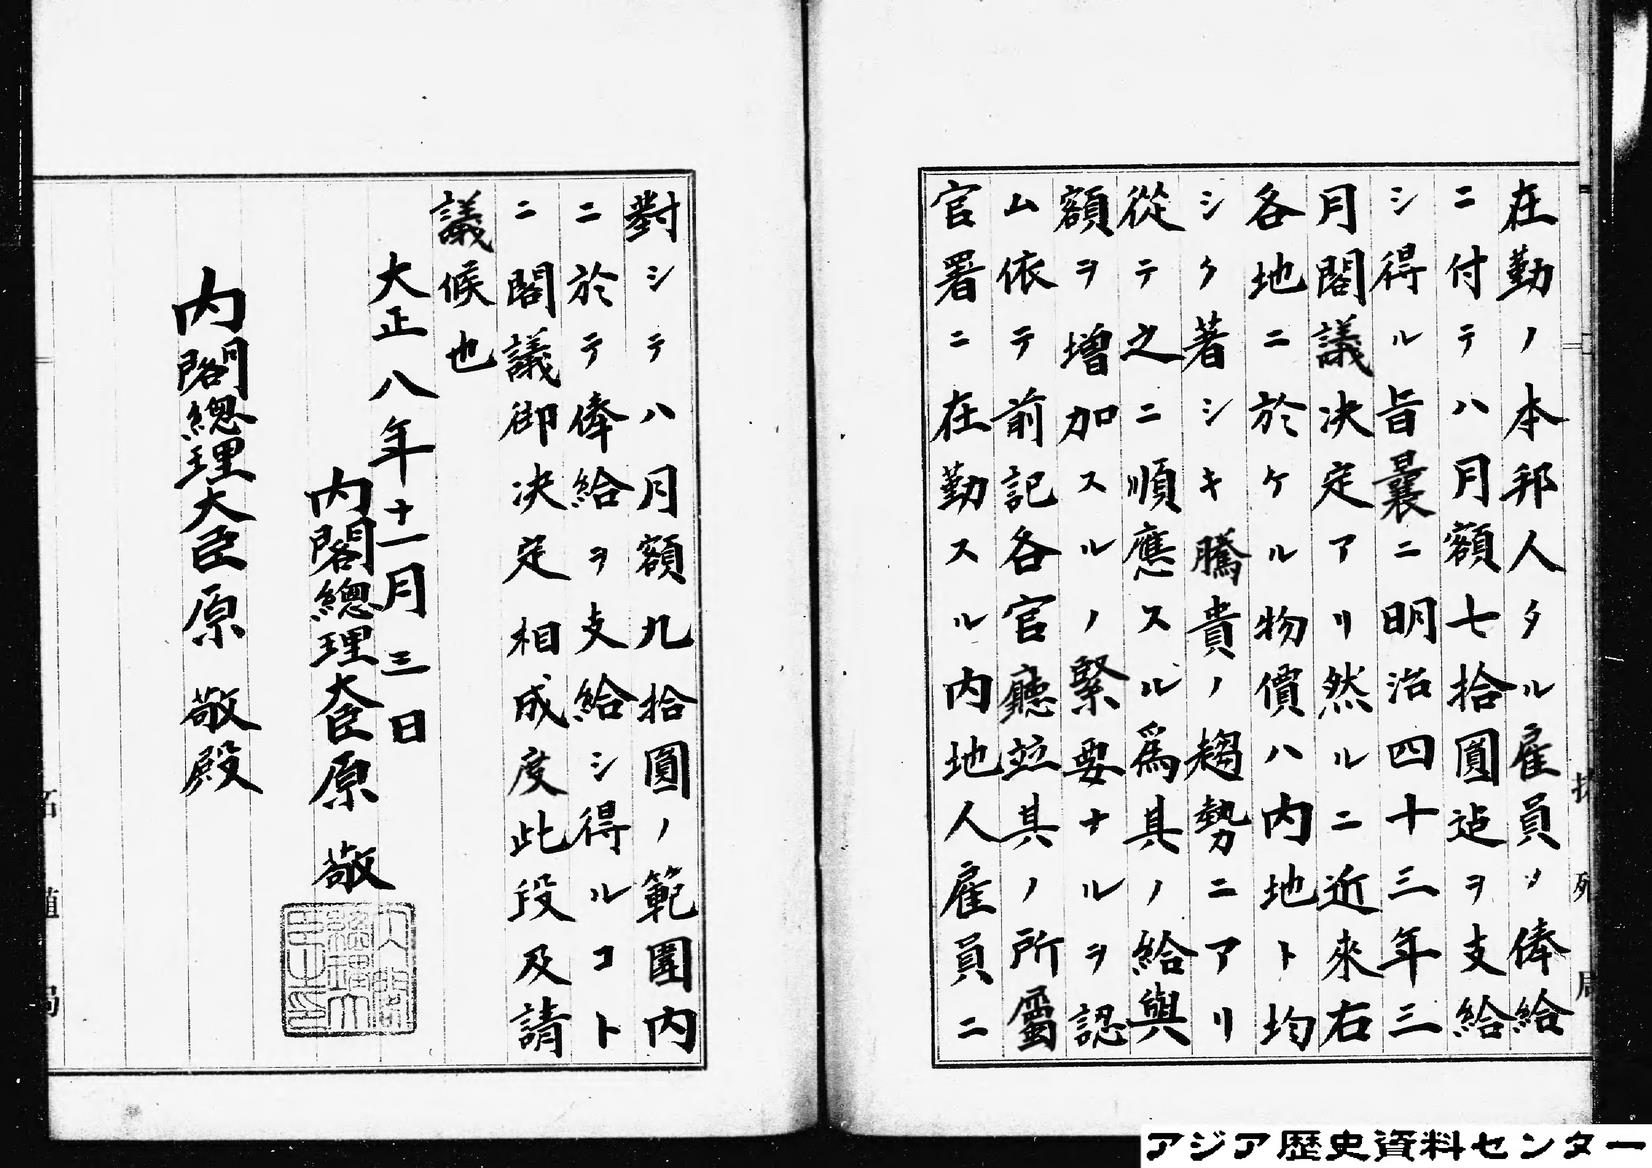 在勤ノ本邦人タル雇員ノ俸給
ニ付テハ月額七拾圓迠ヲ支給
シ得ル旨曩ニ明治四十三年三
月閣議決定アリ然ルニ近來右
各地ニ於ケル物價ハ内地ト均
シク著シキ騰貴ノ趨勢ニアリ
從テ之ニ順應スル爲其ノ給與
額ヲ増加スルノ緊要ナルヲ認
ム依テ前記各官廳竝其ノ所屬
官署ニ在勤スル内地人雇員ニ
對シテハ月額九拾圓ノ範圍内
ニ於テ俸給ヲ支給シ得ルコト
ニ閣議御決定相成度此段及請
議候也
大正八年十一月三日
内閣總理大臣原敬
内閣總理大臣原敬殿
拓殖局
アジア歴史資料センター